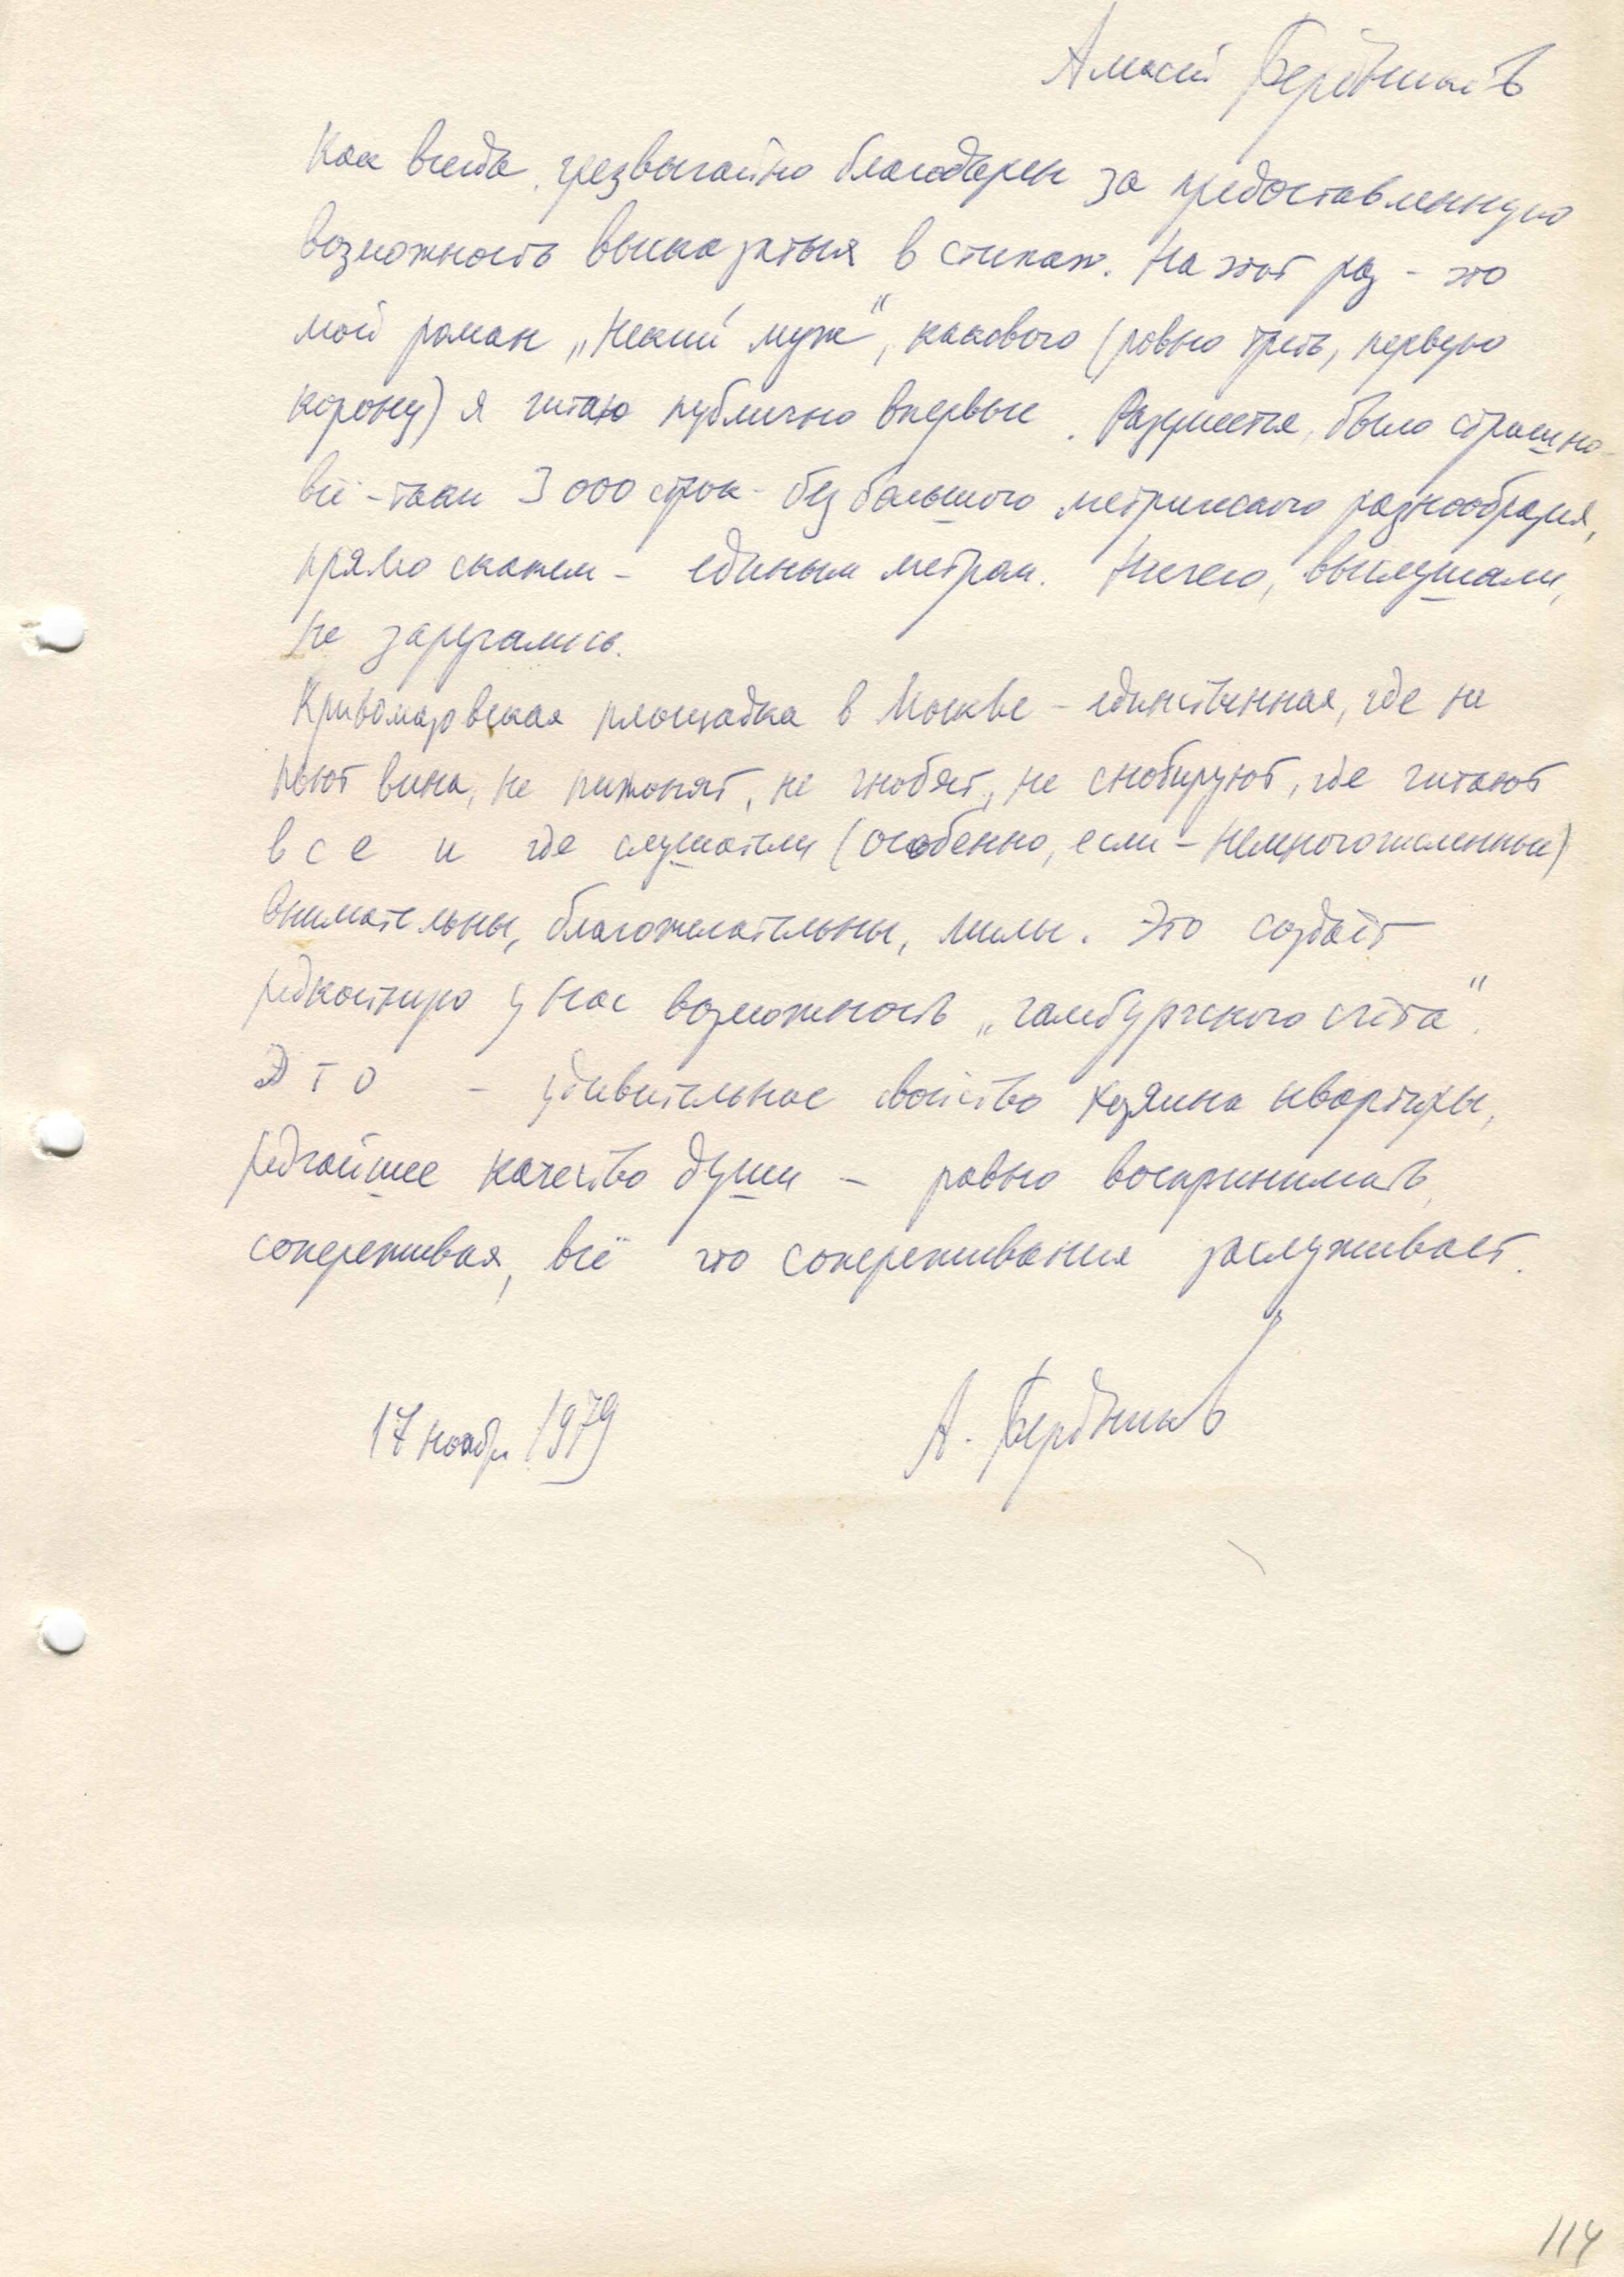 Алексей Бердников
Как всегда, чрезвычайно благодарен за предоставленную
возможность высказаться в стихах. На этот раз – это
мой роман „Некий муж“, какового (ровно треть, первую
корону) я читаю публично впервые. Разумеется, было страшно –
всё-таки 3 000 строк – без большого метрического разнообразия,
прямо скажем – единым метром. Ничего, выслушали,
не заругались.
Кривомазовская площадка в Москве – единственная, где не
пьют вина, не пижонят, не гнобят, не снобируют, где читают
все и где слушатели (особенно, если – немногочисленные)
внимательны, благожелательны, милы. Это создаёт
редкостную у нас возможность „гамбургского счёта“.
Это – удивительное свойство хозяина квартиры,
редчайшее качество души – равно воспринимать,
сопереживая, всё что сопереживания заслуживает.
17 ноября 1979
А. Бердников
114